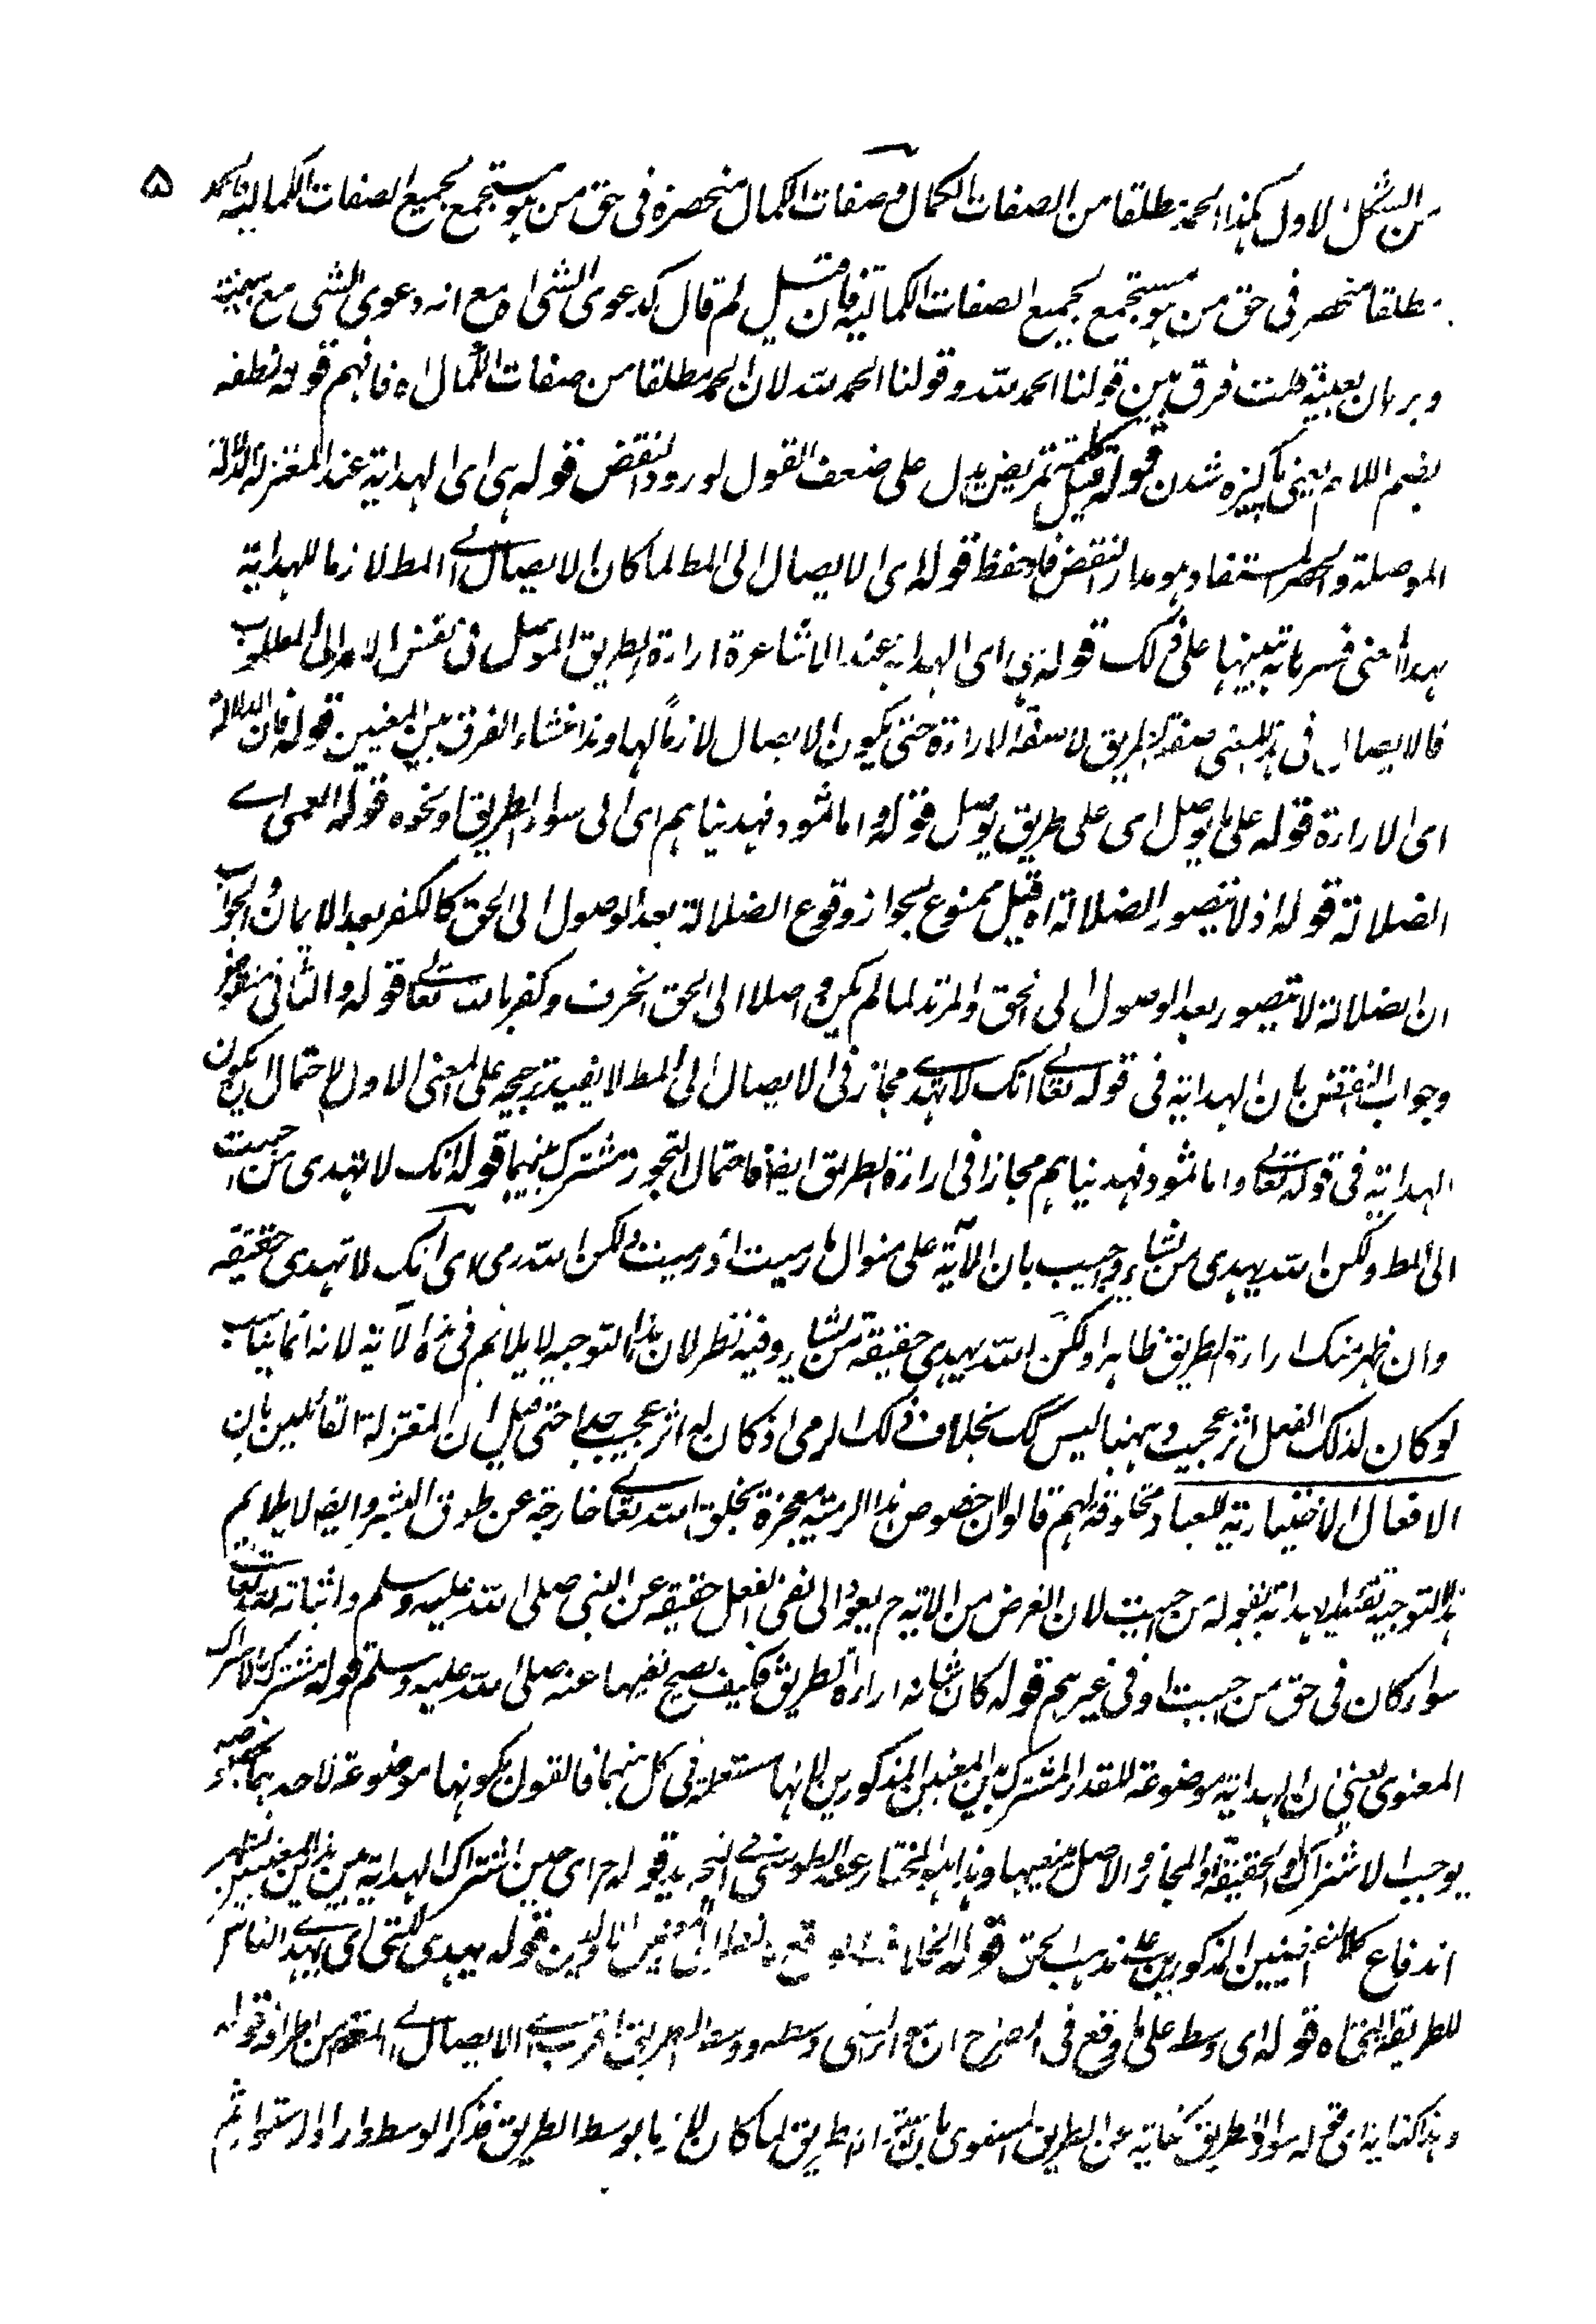 ۵
من الشكل الاول هكذا الحمد مطلقا من الصفات الكمال وصفات الكمال منحصرة فى حق من هو مستجمع لجميع الصفات الكمالية فالحمد
مطلقا منحصر فى حق من هو مستجمع لجميع الصفات الكمالية فان قيل لم قال كدعوى الشئ اه مع انه دعوى الشى مع بينة
وبرهان بعينه قلت فرق بين قولنا الحمد لله وقولنا الحمد لله لان الحمد مطلقا من صفات الكمال اه فافهم قوله لطفه
بضم اللام يعنى پاكيزه شدن قوله قيل كلمة تمريض يدل على ضعف القول لورود النقض قوله هى اى الهداية عند المعتزلة الدلالة
الموصلة والحصر المستفاد هو مدار النقض فاحفظ قوله اى الايصال الى المط لما كان الايصال الى المط لازما للهداية
بهذا المعنى فسر بانه تنبيها على ذلك قوله هى اى الهداية عند الاشاعرة اراءة الطريق الموصل فى نفس الامر الى المطلوب
فالايصال فى هذا المعنى صفة الطريق لا صفة الاراءة حتى يكون الايصال لازمًا لها وهذا منشاء الفرق بين المعنيين قوله فان الدلالة
اى الاراءة قوله على ما يوصل اى على طريق يوصل قوله واما ثمود فهديناهم اى الى سواء الطريق او نحوه قوله العمى اے
الضلالة قوله اذ لا يتصور الضلالة اه قيل ممنوع لجواز وقوع الضلالة بعد الوصول الى الحق كالكفر بعد الايمان والجواب
ان الضلالة لا يتصور بعد الوصول الى الحق والمرتد لما لم يكن واصلا الى الحق انحرف وكفر بالله تعالے قوله والثانى منقوض
وجواب النقض بان الهداية فى قوله تعالے انك لا تهدے مجاز فى الايصال الى المط لا يفيد ترجيحه على المعنى الاول لاحتمال ان يكون
الهداية فى قوله تعالے واما ثمود فهديناهم مجازا فى اراءة الطريق ايضا فاحتمال التجوز مشترك بينهما قوله انك لا تهدى من احببت
الى المط ولكن الله يهدى من يشاء واجيب بان الآية على منوال ما رميت اذ رميت ولكن الله رمى اى انك لا تهدى حقيقة
وان ظهر منك اراءة الطريق ظاهرا ولكن الله يهدى حقيقة من يشاء وفيه نظر لان هذا التوجيه لا يلائم فى هذه الآية لانه انما يناسب
لو كان لذلك الفعل اثر عجيب وههنا ليس كك بخلاف ذلك الرمى اذ كان له اثر عجيب جدا حتى قيل ان المعتزلة القائلين بان
الافعال الاختيارية للعباد مخلوقة لهم قالوا ان خصوص هذا الرمية معجزة بخلق الله تعالے خارجة عن طوق البشر وايضا لا يلايم
هذا التوجيه تقييد الهداية بقوله من احببت لان الغرض من الاية ح يعود الى نفى الفعل حقيقة عن النبى صلى الله عليه وسلم واثباته لله تعالے
سواء كان فى حق من احببت او فى غيرهم قوله كان شانه اراءة الطريق فكيف يصح نفيها عنه صلى الله عليه وسلم قوله مشترك الاشتراك
المعنوى يعنى ان الهداية موضوعة للقدر المشترك بين المعنيين المذكورين لانها مستعملة فى كل منهما فالقول بكونها موضوعة لاحدهما بخصوصه
يوجب الاشتراك او الحقيقة والمجاز والاصل ينفيها وهذا هو المختار عند الطوسى فى التجريد قوله ح اى حين اشتراك الهداية بين هذين المعنيين يظهر
اندفاع كلا النقضين المذكورين على مذهب الحق قوله قوله يهدى للتى اى يهدے الناس
للطريقة التى اه قوله اى وسط على ما وقع فى الصراح ان سواء الشى وسطه ووسط الطريق اقرب فى الايصال الى المقصد من اطرافه قوله
وهذا كناية اى قوله سواء الطريق كناية عن الطريق المستوى لما كان لازما بوسط الطريق فذكر الوسط واراد الاستواء ثم